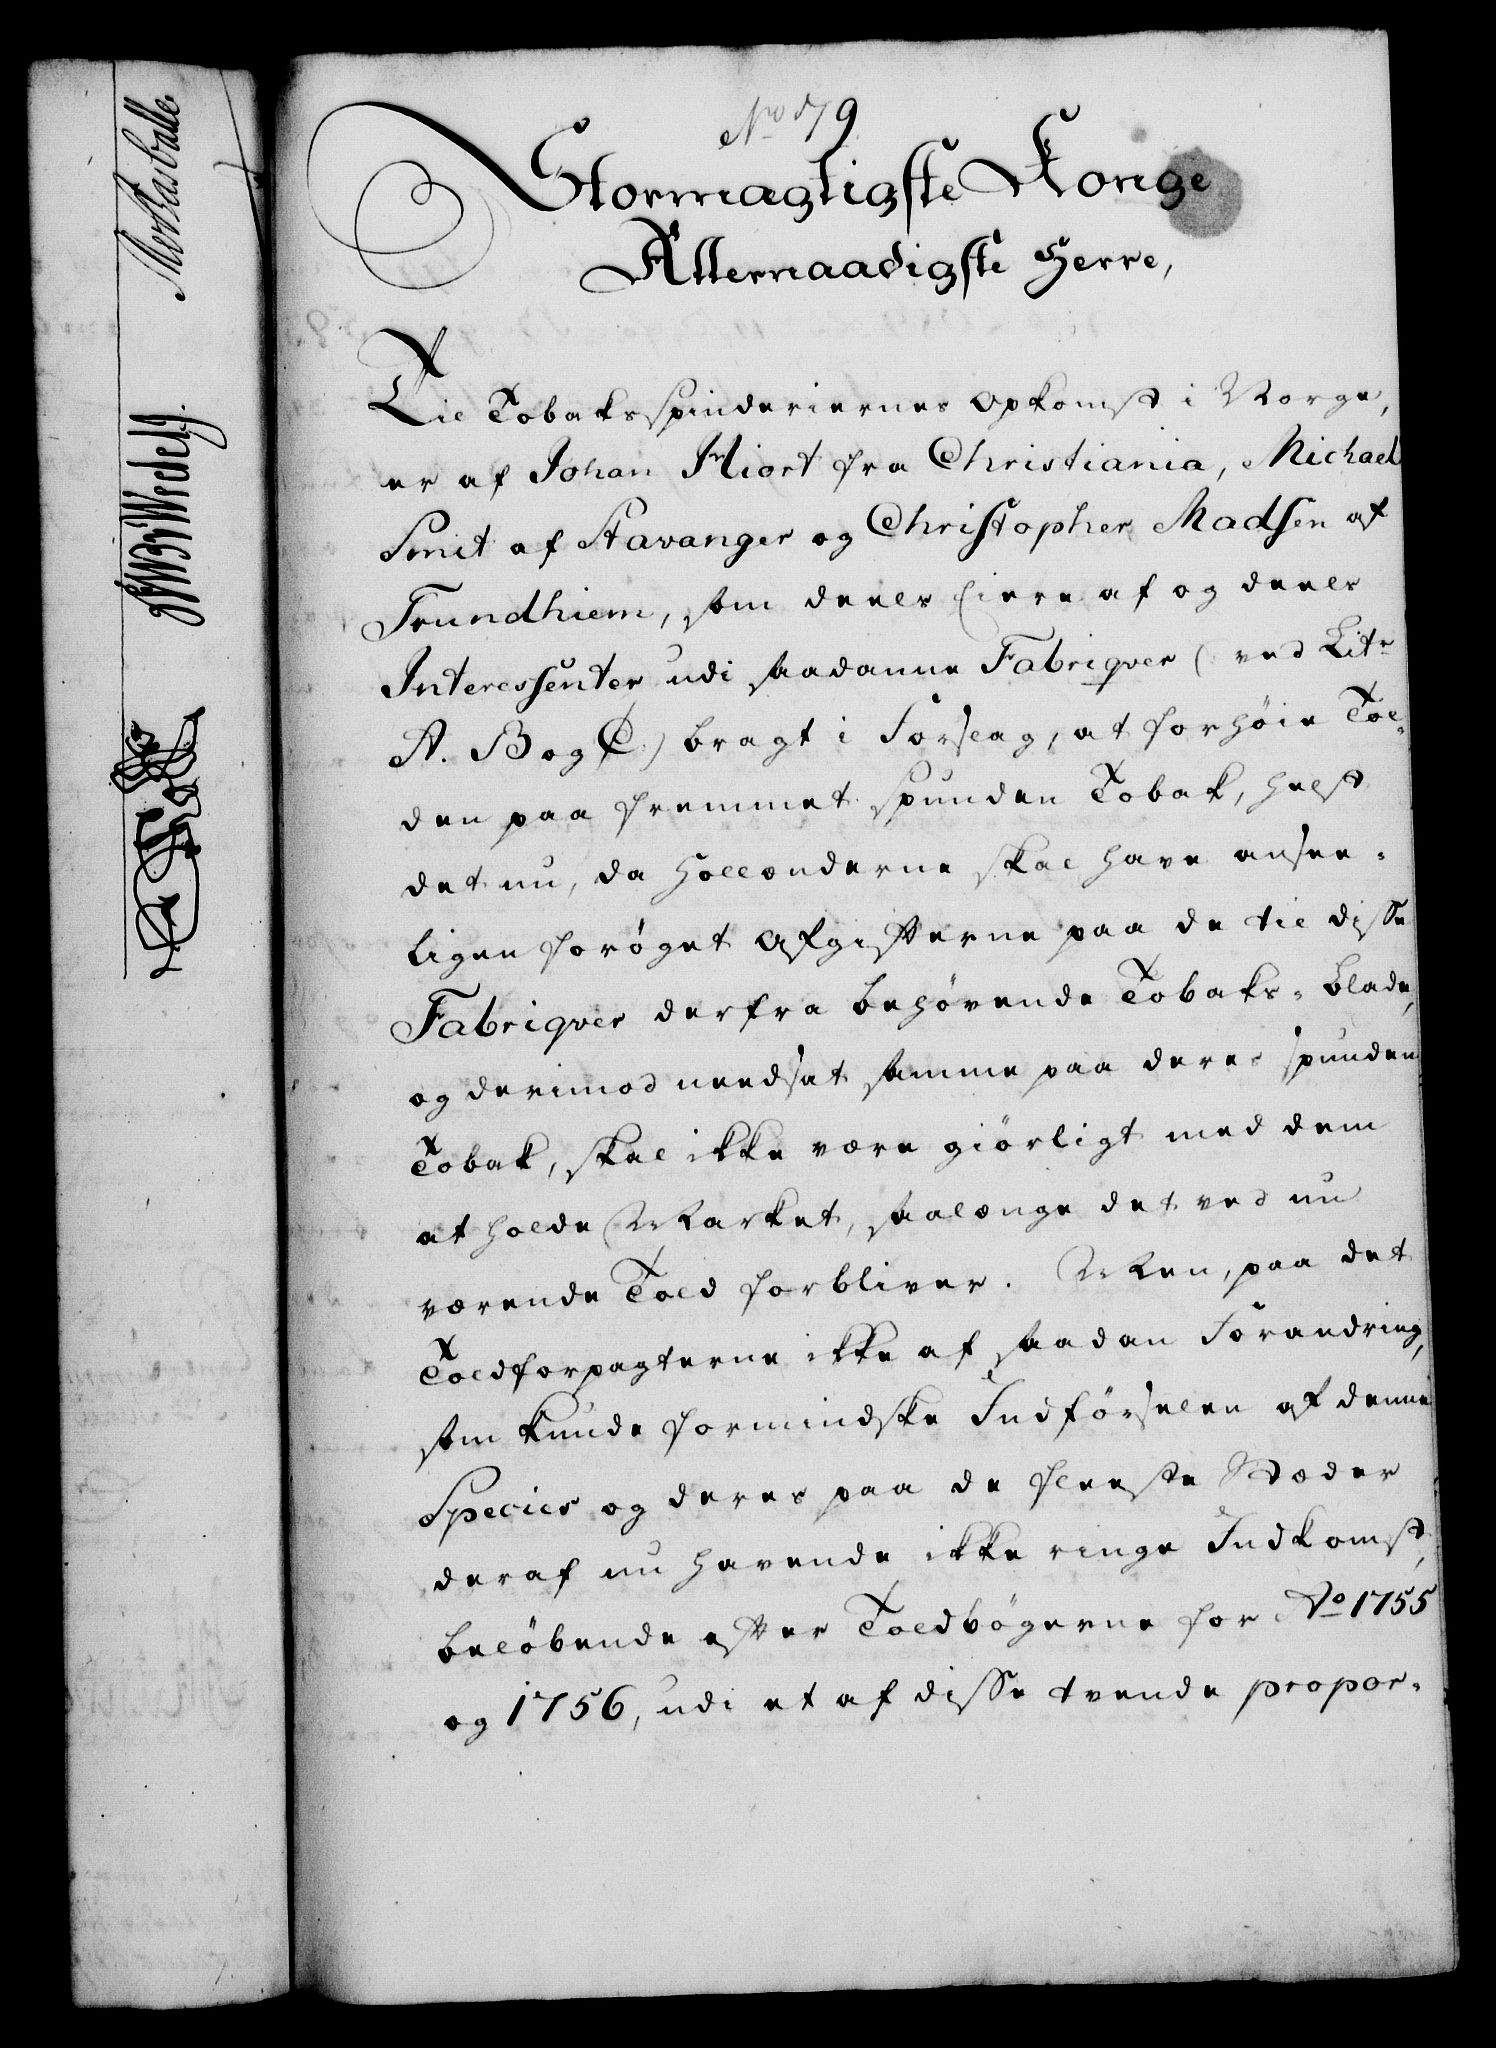 No 79
Stormagtigste Konge
Allernaadigste Herre,
Til Tobaksspinderiernes Opkomst i Norge,
er af Johan Hiort fra Christiania, Michael
Smit af Stavanger og Christopher Madsen af
Trundhiem, som deels Eiere af og deels
Interessenter udi saadanne Fabriqver (ved Litr
A. B og C.) bragt i Forslag, at forhöie Tol-
den paa fremmet spunden Tobak, helst
det nu, da Hollænderne skal have ansee-
ligen foröget Afgifterne paa de til disse
Fabriqver derfra behövende Tobaks-blade,
og derimod needsat samme paa deres spunden
Tobak, skal ikke være giörligt med dem
at holde Market, saalænge det ved nu
værende Told forbliver. Men, paa det
Toldforpagterne ikke af saadan Forandring,
som kunde formindske Indförselen af denne
Species og deres paa de fleeste Stæder
deraf nu havende ikke ringe Indkomst,
belöbende efter Toldbögerne for Ao 1755
og 1756, udi et af disse tvende propor-